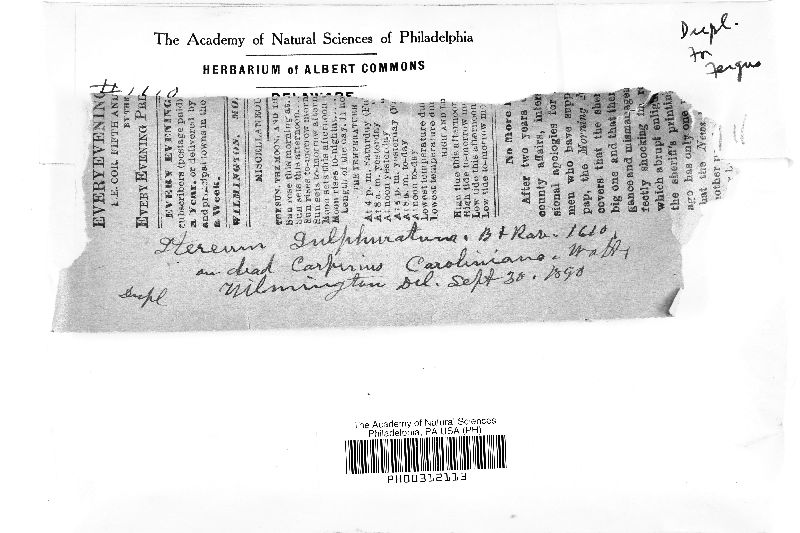 The Academy of Natural Sciences of Philadelphia
HERBARIUM of ALBERT COMMONS
DELAWARE
#1610
Dupl.
for
Fergus
EVERY EVENING
S.E. COR. FIFTH AND
BY THE
EVERY EVENING PR
EVERY EVENING
subscribers (postage paid)
a Year, or delivered by
towns in the
a Week.
WILMINGTON,
MISCELLANEOU
THE SUN, THE MOON, AND
Sun rose this morning at
Sun sets this afternoon
Sun rises to-morrow morni
Sun sets to-morrow aftern
Moon sets this afternoon
Moon rises to-night
Length of the day, 11 ho
THE TEMPERATURE
At 4 p. m. Saturday
At 8 a. m. yesterday
At noon yesterday
At 8 p. m. yesterday
At 8 a. m. to-day
At noon to-day
Lowest temperature du
Lowest temperature du
HIGH AND LO
High tide this afternoon
High tide to-morrow mo
Low tide this afternoon
Low tide to-morrow mo
No More
After two years
county affairs, inter
sional apologies for
men who have supp
pap, the Morning N
covers that the she
big one and that ther
gance and mismanage
fectly shocking in
which abrupt enlig
the sheriff's printin
ago has only one
but the News
nother p
Stereum Sulphuratum. B & Rav. 1610.
on dead Carpinus Caroliniana. Walt.
Dupl Wilmington Del. Sept 30. 1890
The Academy of Natural Sciences
Philadelphia, PA USA (PH)
PH00312113